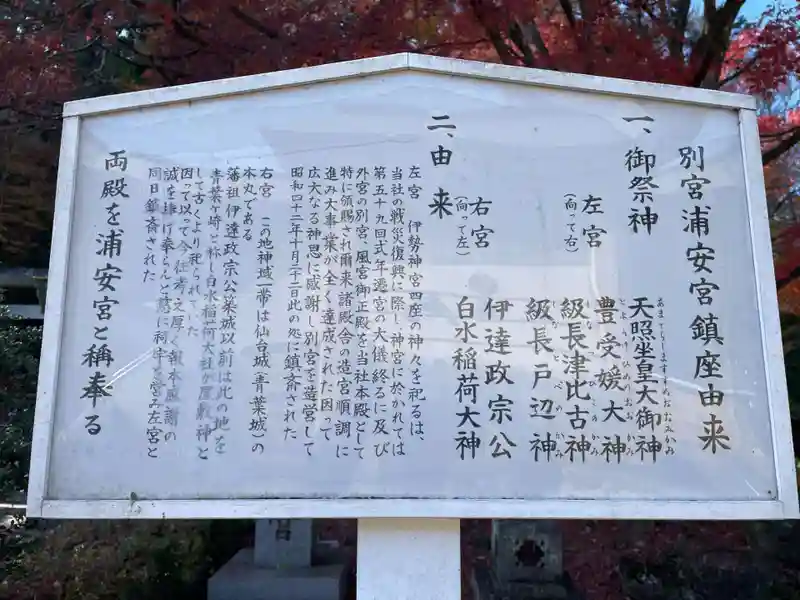 別宮浦安宮鎮座由来
一、御祭神
左宮
(向って右)
天照坐皇大御神
あまてらしますすめおおみかみ
豊受媛大神
とようけひめのおおかみ
級長津比古神
しなつひこのかみ
級長戸辺神
しなとべのかみ
右宮
(向って左)
伊達政宗公
白水稲荷大神
二、由来
左宮 伊勢神宮四座の神々を祀るは、
当社の戦災復興に際し、神宮に於かれては
第五十九回式年遷宮の大儀終るに及び
外宮の別宮、風宮御正殿を当社本殿として
特に頒賜され爾来諸殿舎の造宮順調に
進み大事業が全く達成された因って
広大なる神恩に感謝し別宮を造営して
昭和四十二年十月三十二日此の処に鎮斎された
右宮 この地神域一帯は仙台城(青葉城)の
本丸である
藩祖伊達政宗公築城以前は此の地を
青葉ヶ崎と称し白水稲荷大社が屋敷神と
して古くより祀られていた
因って以って今 往考之厚く報本感謝の
誠を捧げ奉らんと茲に祠宇を営み左宮と
同日鎮斎された
両殿を浦安宮と稱奉る